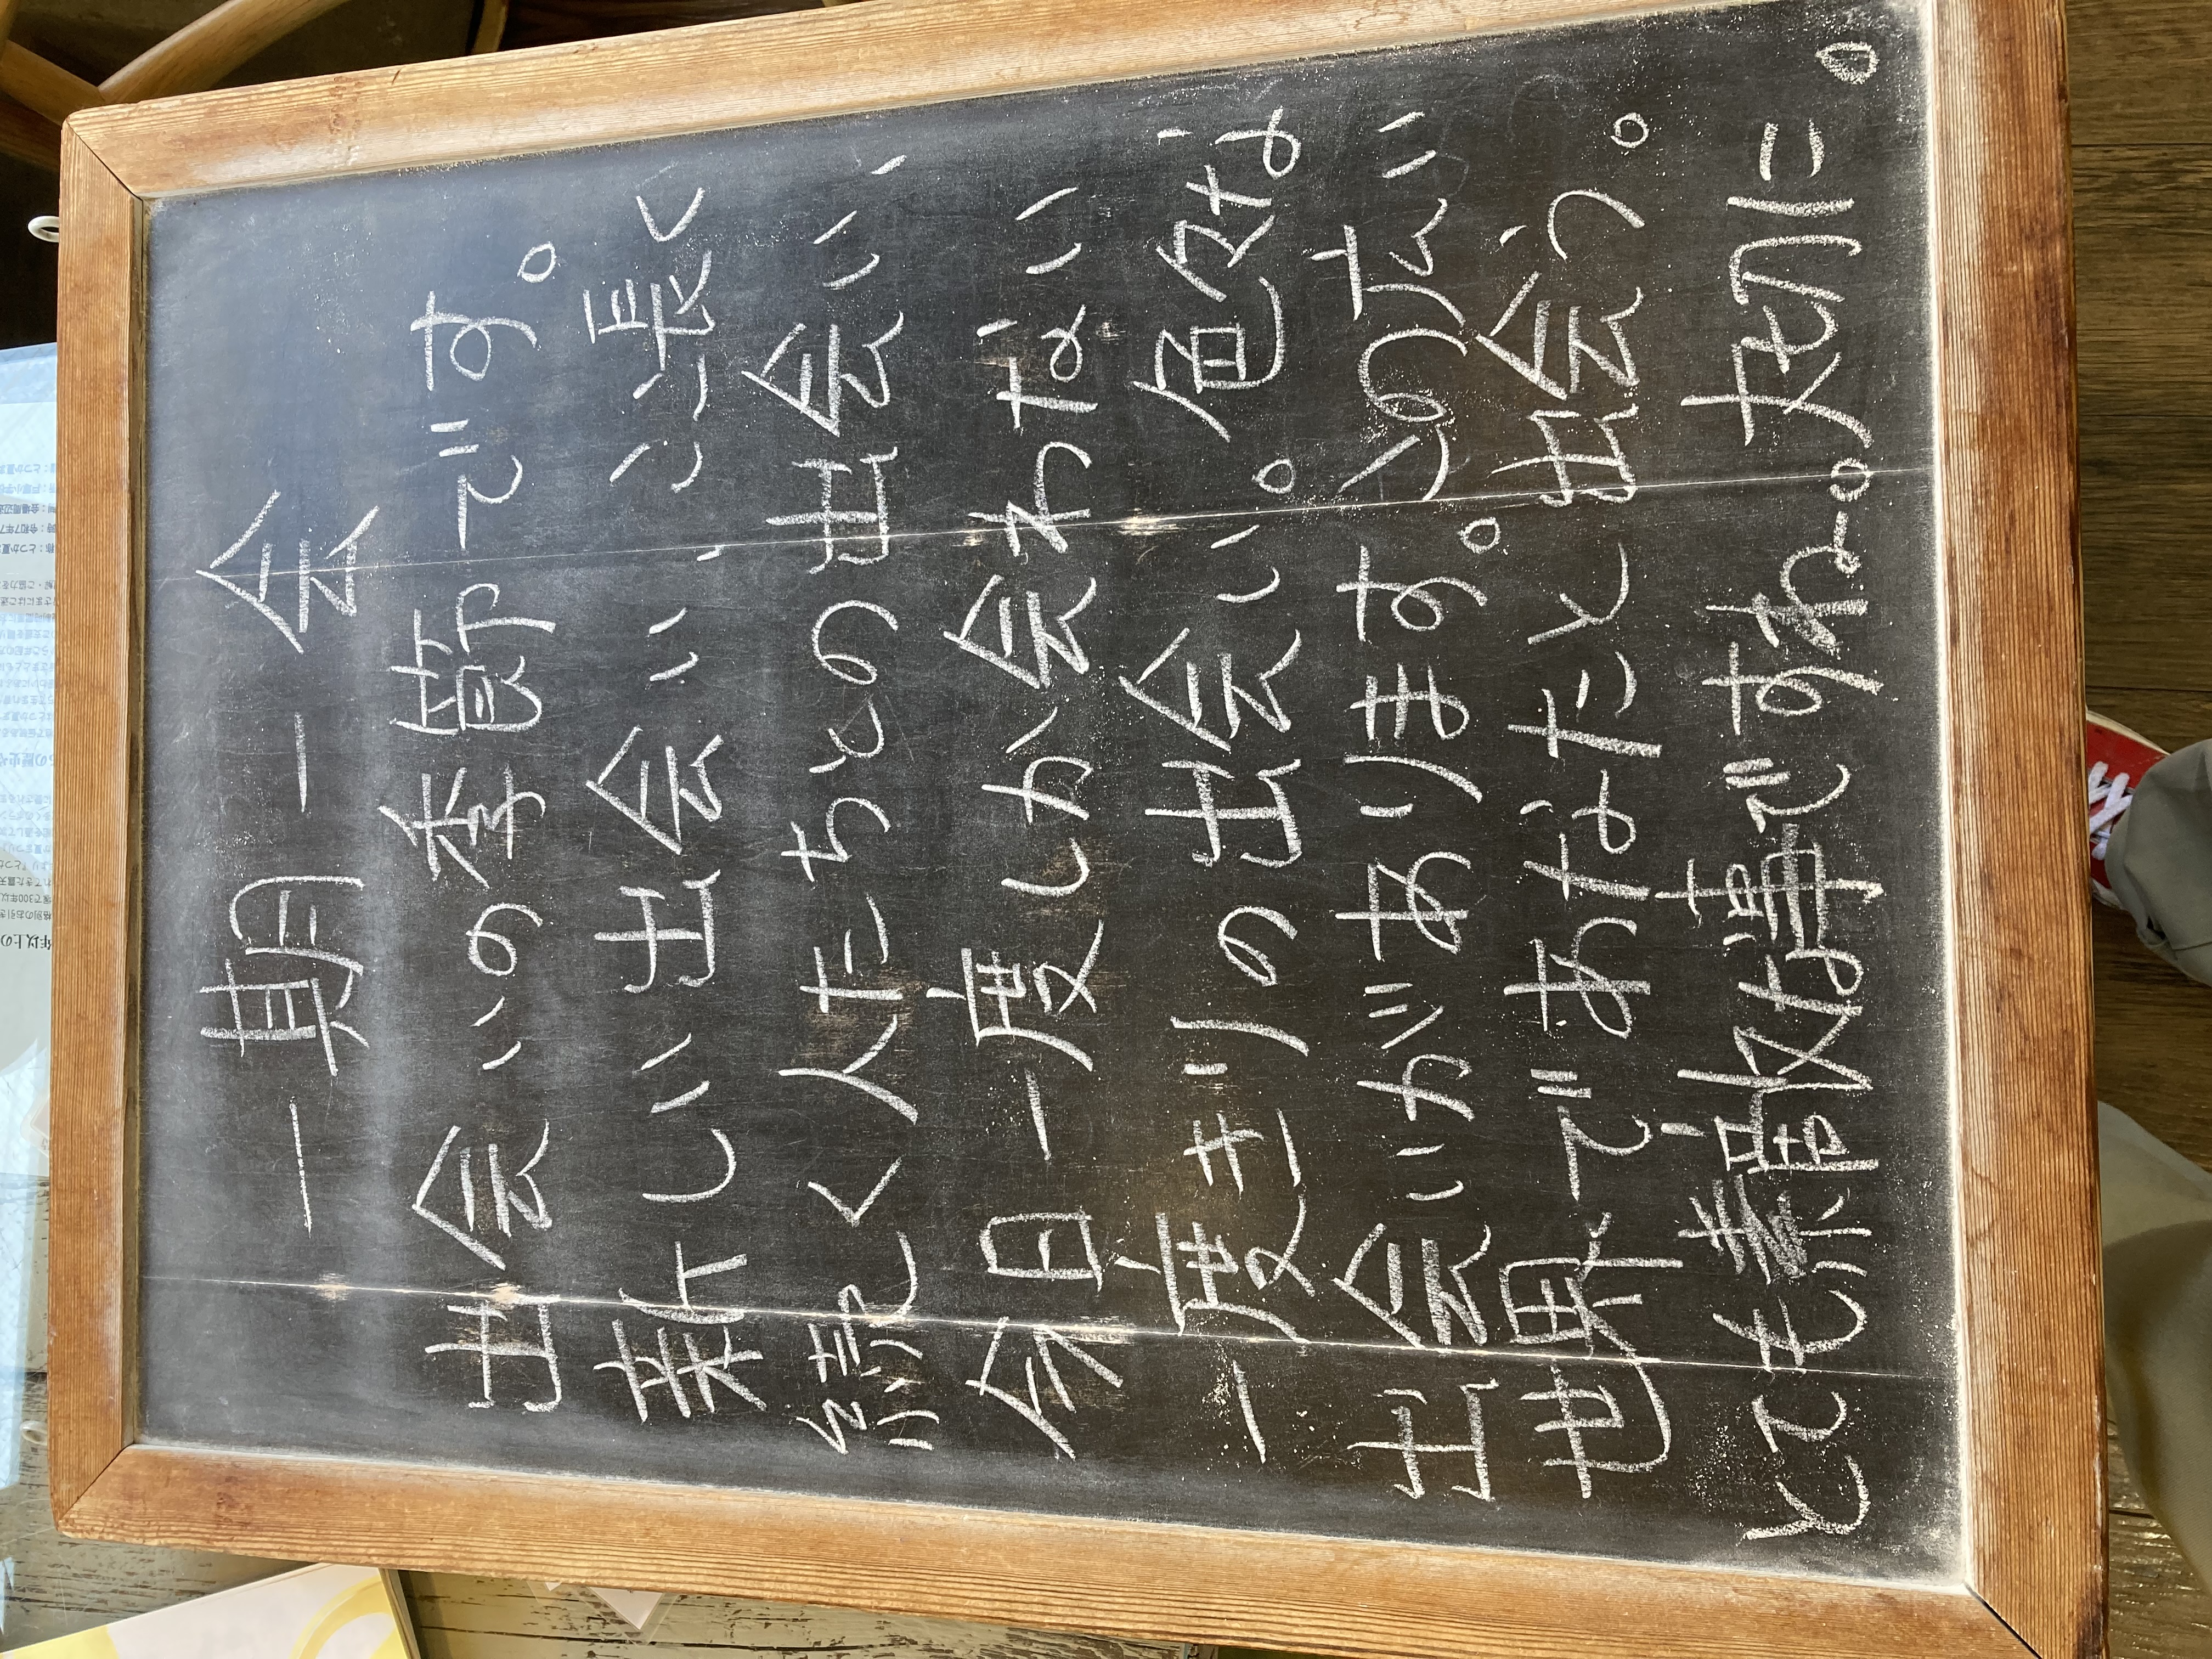 一期一会
出会いの季節です。
新しい出会い、ここ長く
続く人たちとの出会い、
今日一度しか会わない
一度きりの出会い。色々な
出会いがあります。この広い
世界であなたと出会う。
とても素敵な事ですね。大切に。